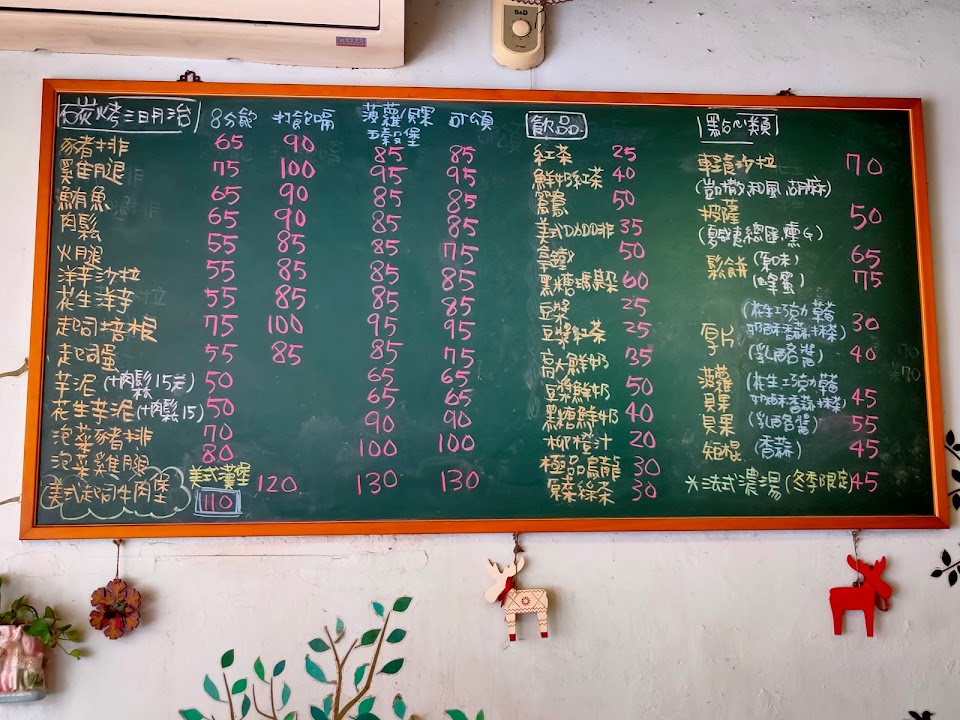 碳烤三明治 8分飽 打飽嗝 菠蘿貝果 五穀堡 可頌
豬排 65 90 85 85
雞腿 75 100 95 95
鮪魚 65 90 85 85
肉鬆 65 90 85 85
火腿 55 85 85 75
洋芋沙拉 55 85 85 85
花生洋芋 55 85 85 85
起司培根 75 100 95 95
起司蛋 55 85 85 75
芋泥(+肉鬆15元) 50 65 65
花生芋泥(+肉鬆15) 50 65 65
泡菜豬排 70 90 90
泡菜雞腿 80 100 100
美式起司牛肉堡 美式漢堡 110 120 130 130
飲品
紅茶 25
鮮奶紅茶 40
鴛鴦 50
美式咖啡 35
拿鐵 50
黑糖瑪其朵 60
豆漿 25
豆漿紅茶 25
鮮奶 35
豆漿鮮奶 50
黑糖鮮奶 40
柳橙汁 20
極品烏龍 30
綠茶 30
點心類
輕食沙拉 70
(凱撒.和風.胡麻)
披薩 50
(夏威夷.總匯.燻G)
鬆餅 (原味) 65
(蜂蜜) 75
厚片 (花生.巧克力.草莓
奶酥.香蒜.抹茶) 30
(乳酪.藍莓) 40
菠蘿貝果 (花生.巧克力.草莓
奶酥.香蒜.抹茶) 45
貝果 (乳酪.藍莓) 55
短棍 (香蒜) 45
*法式濃湯(冬季限定) 45